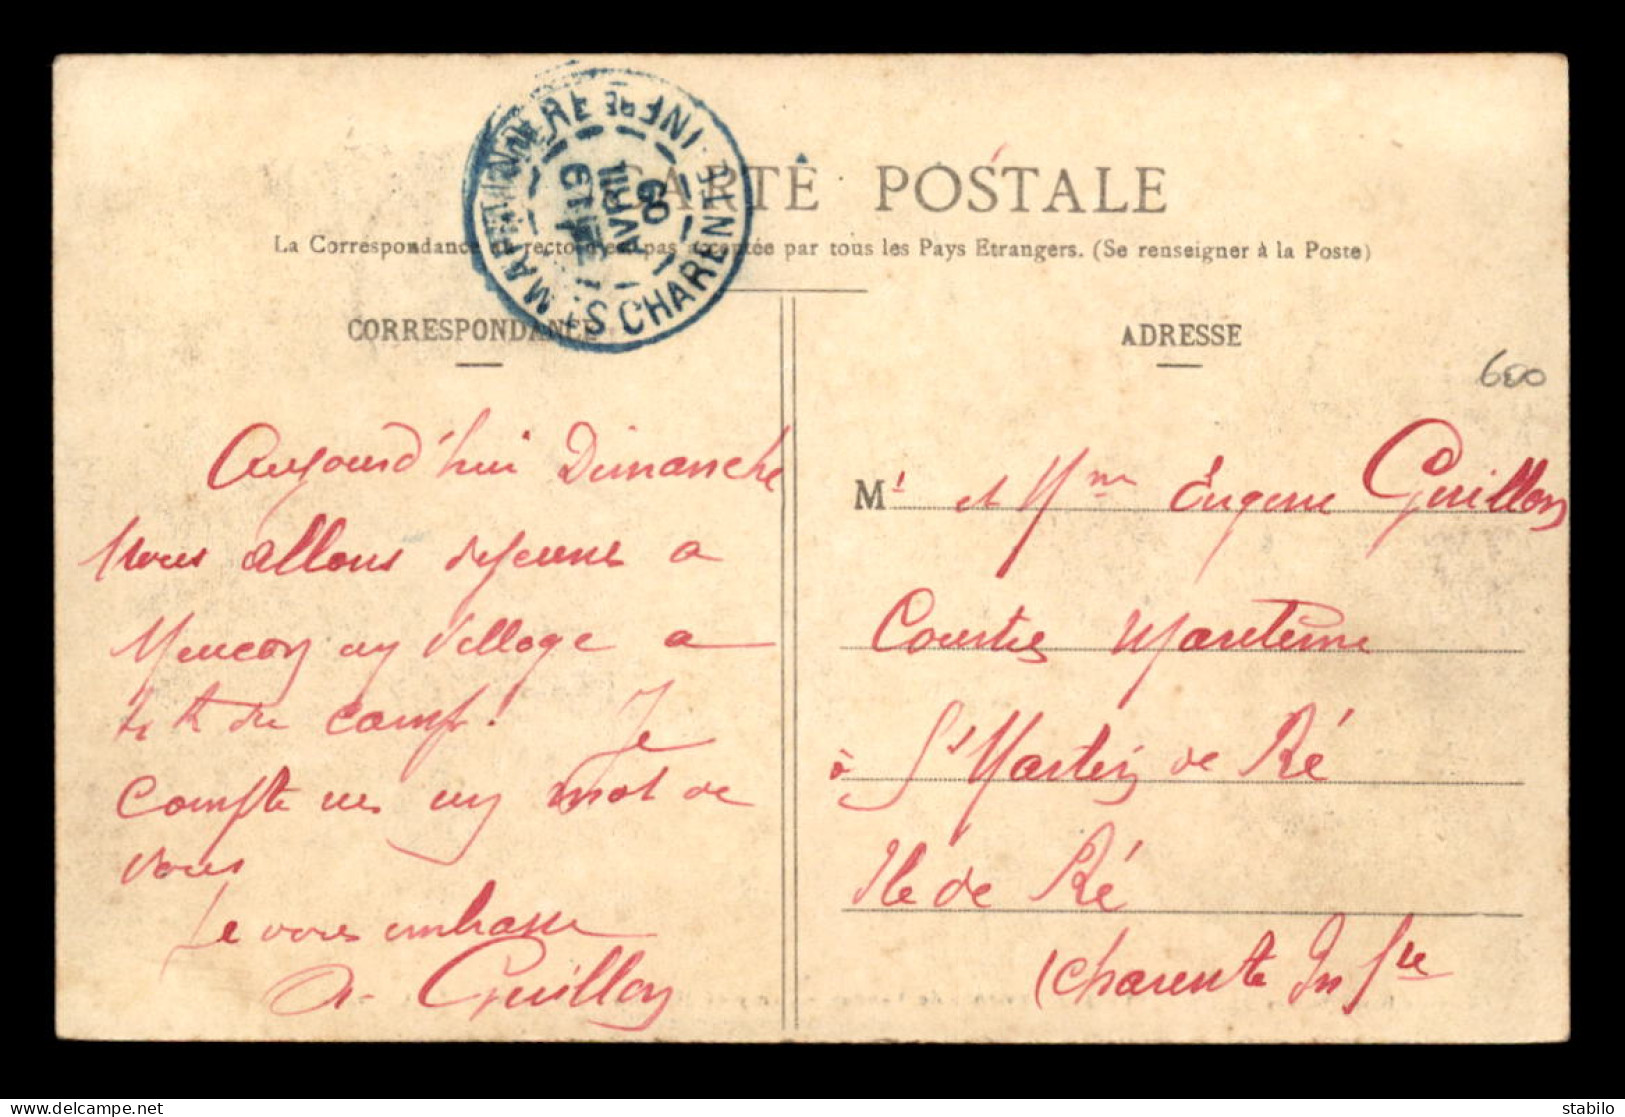 CARTE POSTALE
La Correspondance au recto n'est pas acceptée par tous les Pays Etrangers. (Se renseigner à la Poste)
CORRESPONDANCE
Aujourd'hui Dimanche
Nous allons dejeuner a
un Village a
du camp. Je
compte un mot de
vous
Je vous embrasse
A. Guillon
ADRESSE
600
M r et Mme Eugene Guillon
Courtier Maritime
à St Martin de Ré
Ile de Ré
(Charente Infre
INFRE
CHARENTE
AVRIL
09
stabilo
delcampe.net